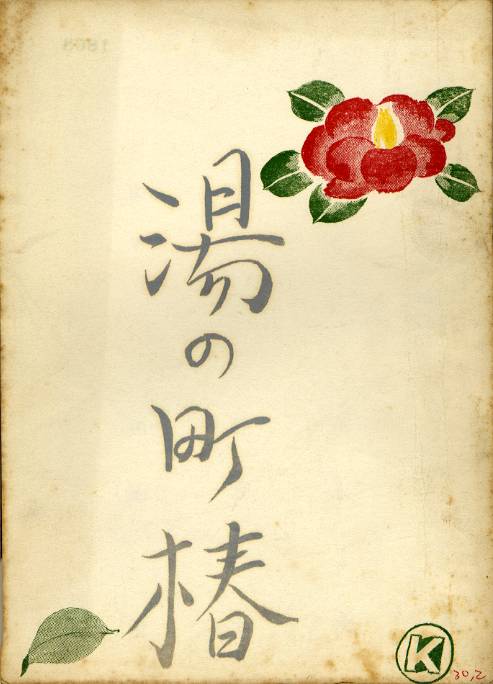 湯の町椿
K
30,2